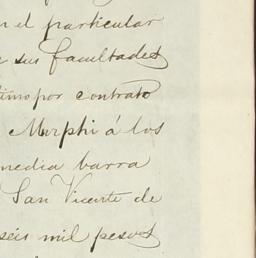 el particular
sus facultades
timo por contrato
Murphi á los
media barra
San Vicente de
seis mil pesos